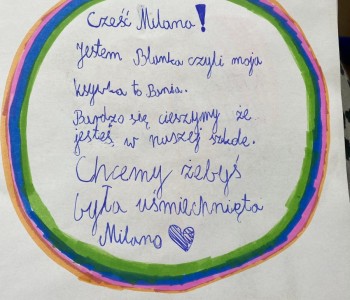 Cześć Milana!
Jestem Blanka czyli moja
ksywka to Bunia.
Bardzo się cieszymy że
jesteś w naszej szkole.
Chcemy żebyś
była uśmiechnięta
Milano